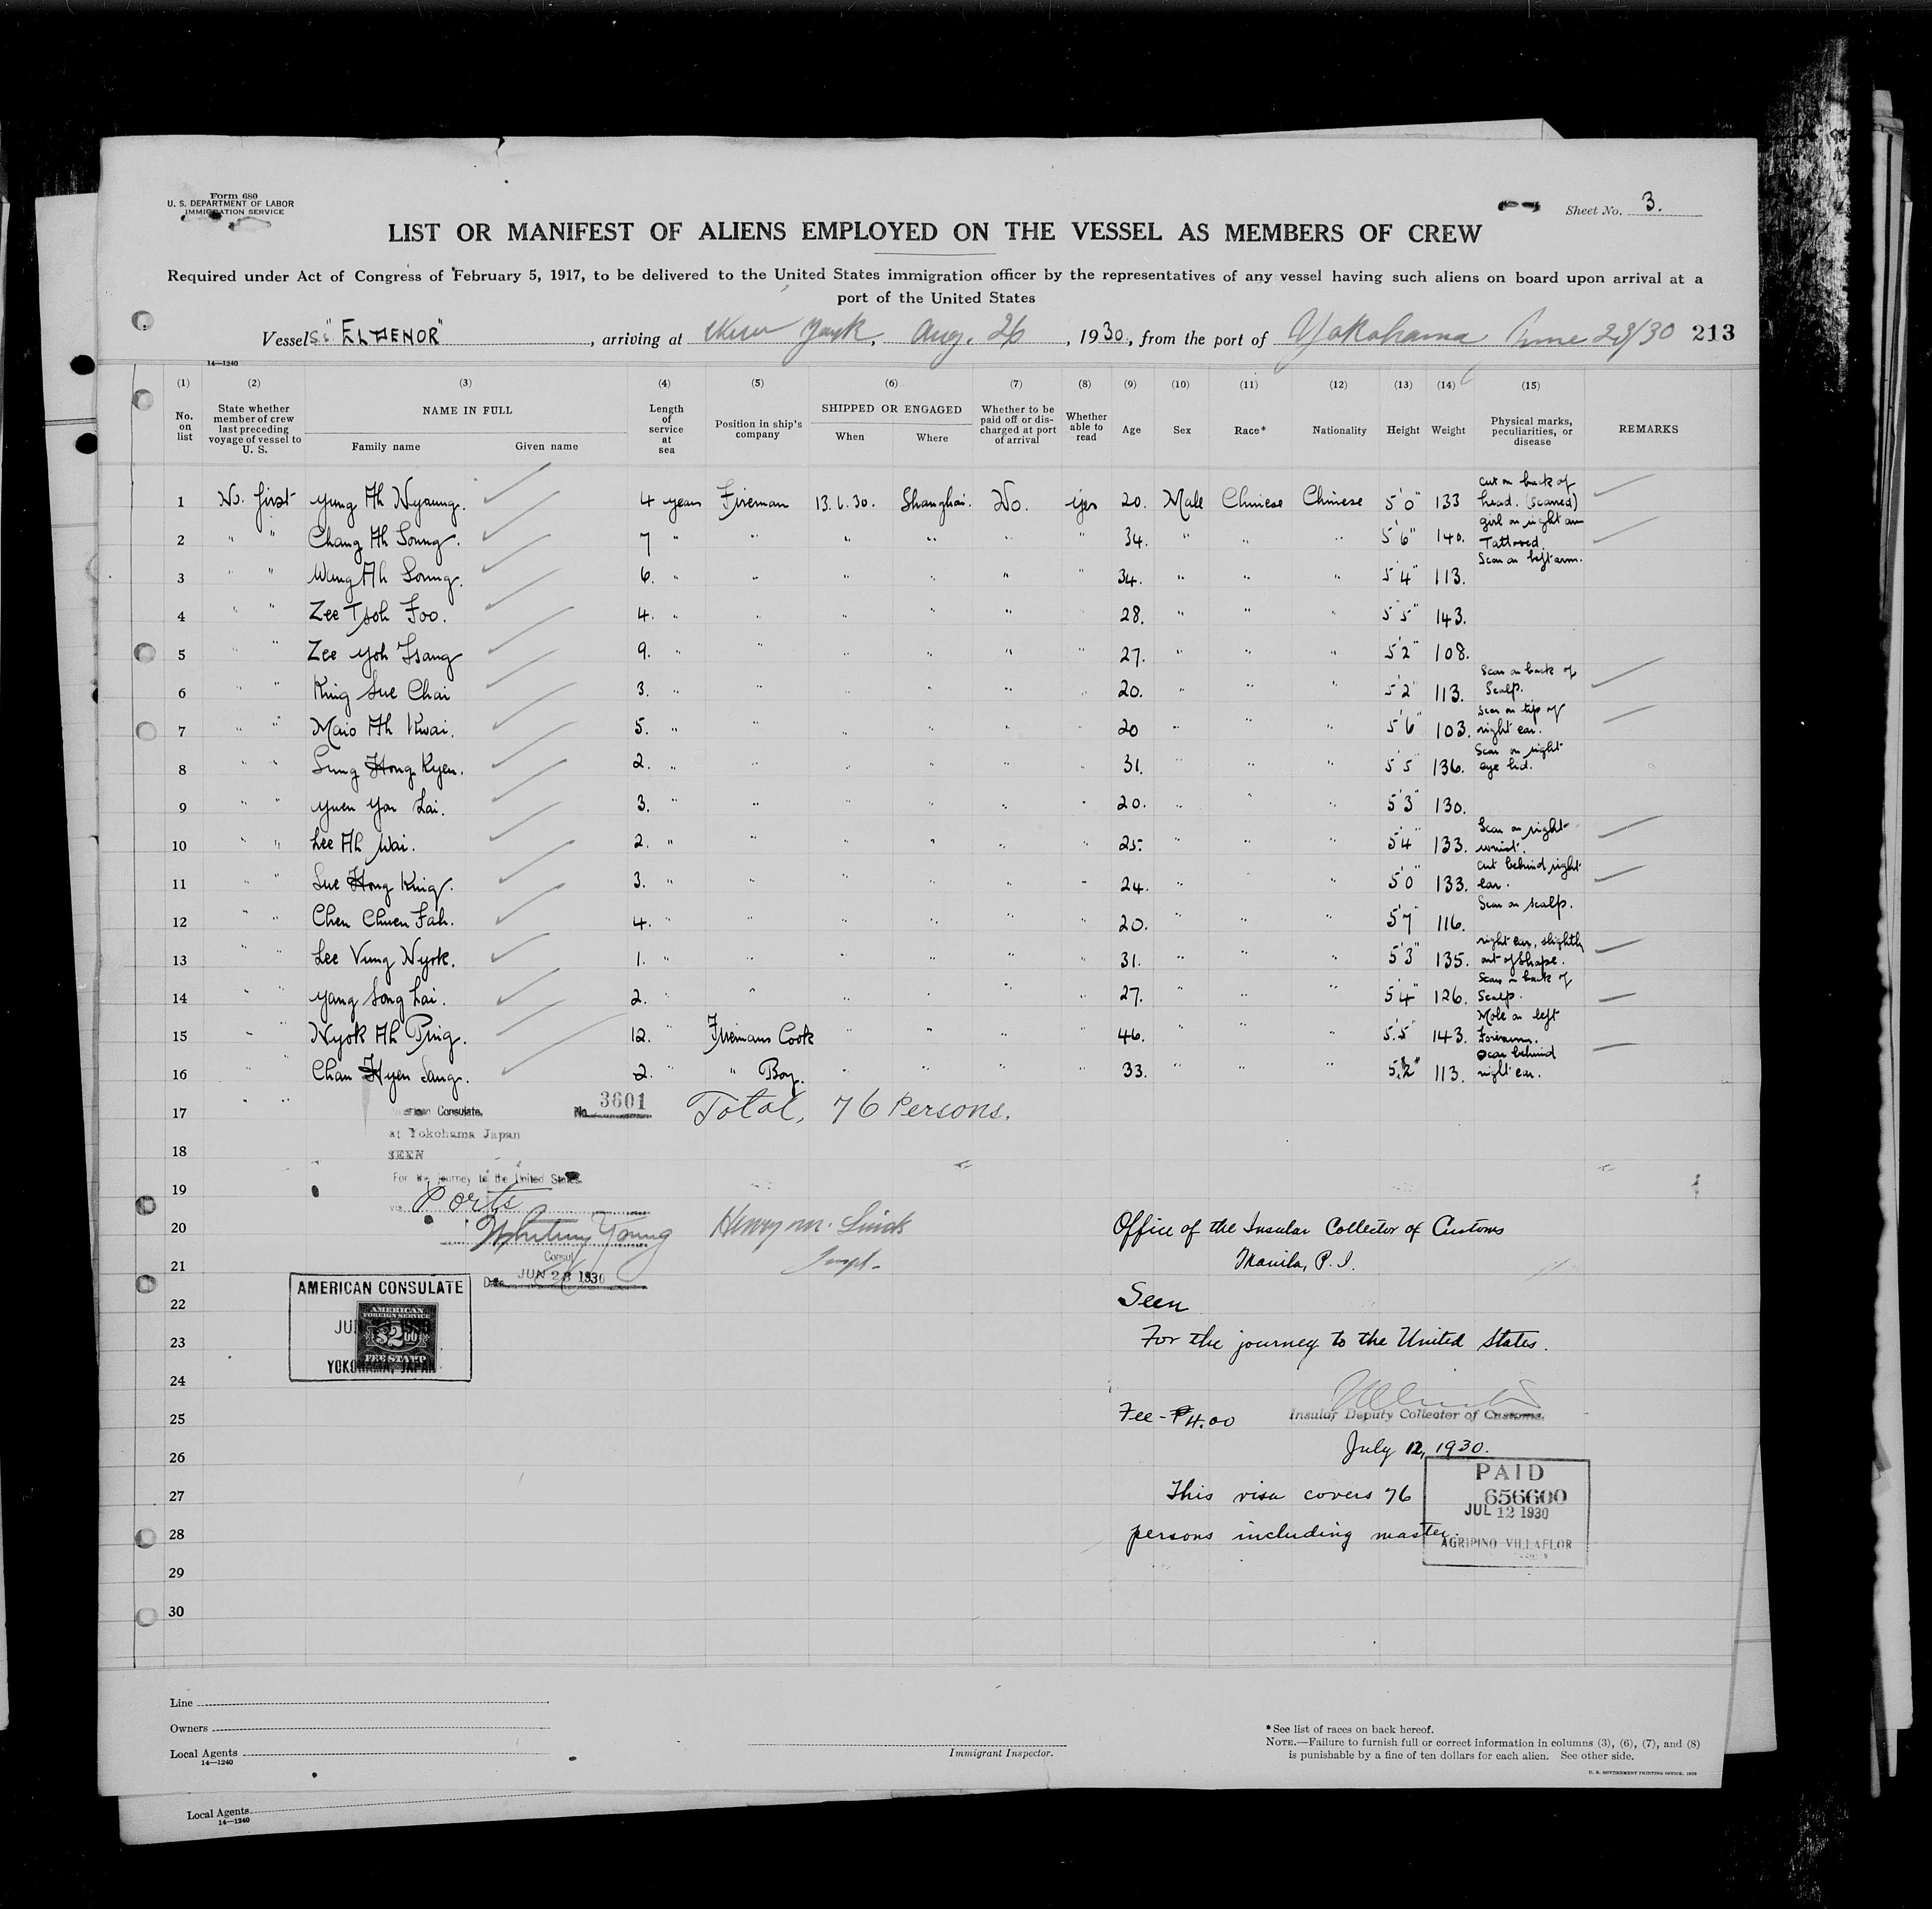 Form 680
U. S. DEPARTMENT OF LABOR
IMMIGRATION SERVICE
Sheet No. 3.
LIST OR MANIFEST OF ALIENS EMPLOYED ON THE VESSEL AS MEMBERS OF CREW
Required under Act of Congress of February 5, 1917, to be delivered to the United States immigration officer by the representatives of any vessel having such aliens on board upon arrival at a
port of the United States
Vessel "ELPENOR", arriving at New York, Aug. 26, 1930, from the port of Yokohama June 28/30 213
14—1240
(1) (2) (3) (4) (5) (6) (7) (8) (9) (10) (11) (12) (13) (14) (15)
No. on list State whether member of crew last preceding voyage of vessel to U. S. NAME IN FULL Family name Given name Length of service at sea Position in ship's company SHIPPED OR ENGAGED When Where Whether to be paid off or discharged at port of arrival Whether able to read Age Sex Race* Nationality Height Weight Physical marks, peculiarities, or disease REMARKS
1 No. first Yung Ah Nyaung. 4 years Fireman 13.6.30. Shanghai. No. Yes 20. Male Chinese Chinese 5'0" 133 Cut on back of head. (Scarred)
2 " " Chang Ah Soung. 7 " " " " " " 34. " " " 5'6" 140. girl on right arm Tattooed.
3 " " Wang Ah Loung. 6. " " " " " 34. " " " 5'4" 113. Scar on left arm.
4 " " Zee Tsoh Foo. 4. " " " " " " 28. " " " 5'5" 143.
5 " " Zee Yoh Tsang 9. " " " " " " 27. " " " 5'2" 108.
6 " " King Sue Chai 3. " " " " " " 20. " " " 5'2" 113. Scar on back of Scalp.
7 " " Maio Ah Kwai. 5. " " " " " " 20 " " " 5'6" 103. Scar on tip of right ear.
8 " " Sung Hong Kyen. 2. " " " " " " 31. " " " 5'5" 136. Scar on right eye lid.
9 " " Yuen Yon Lai. 3. " " " " " " 20. " " " 5'3" 130.
10 " " Lee Ah Wai. 2. " " " " " " 25. " " " 5'4" 133. Scar on right wrist.
11 " " Sue Hong King. 3. " " " " " " 24. " " 5'0" 133. Cut behind right ear.
12 " " Chen Chuen Fah. 4. " " " " " " 20. " " " 5'7" 116. Scar on scalp.
13 " " Lee Vung Nyok. 1. " " " " " " 31. " " " 5'3" 135. right ear, slightly out of shape.
14 " " Yang Song Lai. 2. " " " " " " 27. " " " 5'4" 126. Scar on back of Scalp.
15 " " Nyok Ah Ping. 12. " Firemans Cook " " " " 46. " " " 5'5" 143. Mole on left Forearm.
16 " Chan Hyen Sang. 2. " " Boy. " " " " 33. " " " 5'2" 113. Scar behind right ear.
17 " " American Consulate, No. 3601 Total, 76 Persons.
at Yokohama Japan
18 SEEN
For the journey to the United States
19 via Ports
20 Whitney Young Henry M. Office of the Insular Collector of Customs
Consul
21 Date JUN 28 1930 Inspt. Manila, P. I.
AMERICAN CONSULATE
22 AMERICAN FOREIGN SERVICE Seen
JUN
$2.00
23 FEE STAMP For the journey to the United States.
YOKOHAMA, JAPAN
24
25 Fee - ₱4.00 Insular Deputy Collector of Customs.
26 July 12, 1930.
PAID
27 This visa covers 76 656600
JUL 12 1930
28 persons including master. AGRIPINO VILLAFLOR
29
30
Line
Owners
Local Agents
14—1240
Immigrant Inspector.
*See list of races on back hereof.
NOTE.—Failure to furnish full or correct information in columns (3), (6), (7), and (8)
is punishable by a fine of ten dollars for each alien. See other side.
U. S. GOVERNMENT PRINTING OFFICE, 1929
Local Agents
14—1240